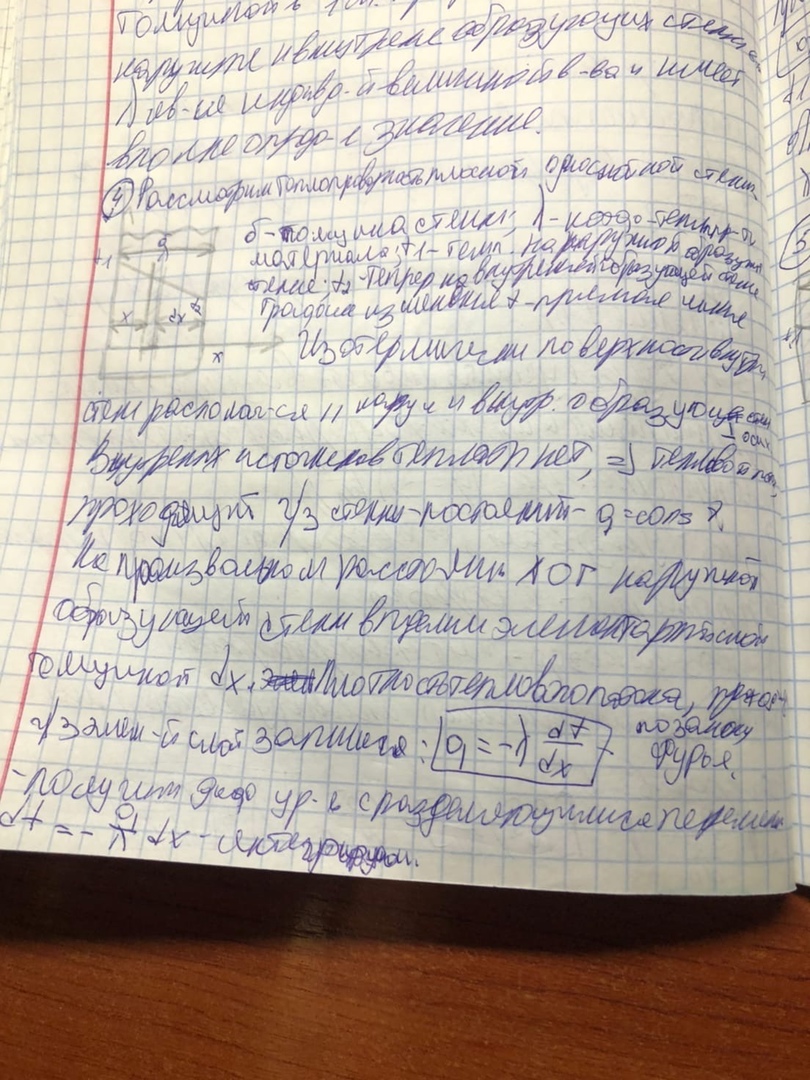 толщиной в 1м. пр
наружные и внутрение образующих стенки
λ яв-ся индив-й величиной в-ва и имеет
вполне опред-е значение.
④ Рассмотрим теплопроводность плоской однослойной стенки
δ - толщина стенки; λ - коэфф-тепл-ти
материала; t1-темп. на наружной образующ
стенке; t2- на внутренней образующей стене
График изменения t - прямая линия
t1 δ x dx t2 x
Изотермически поверхности внутри
стен располаг-ся || наруж и внутр. образующ стен
оси x
Внутрених источников теплоты нет, => тепловой пот,
проходящий ч/з стенку-постоянный- q=const.
На произвольном расстоянии x от наружной
образующей стены выделим элементарный слой
толщиной dx. Плотность теплового потока,
ч/з элем-й слой запишем: q = -λ dt/dx - по закону
Фурье.
-получим ур-е с разделяющимися перемен
dt = - q/λ dx - интегрируем.